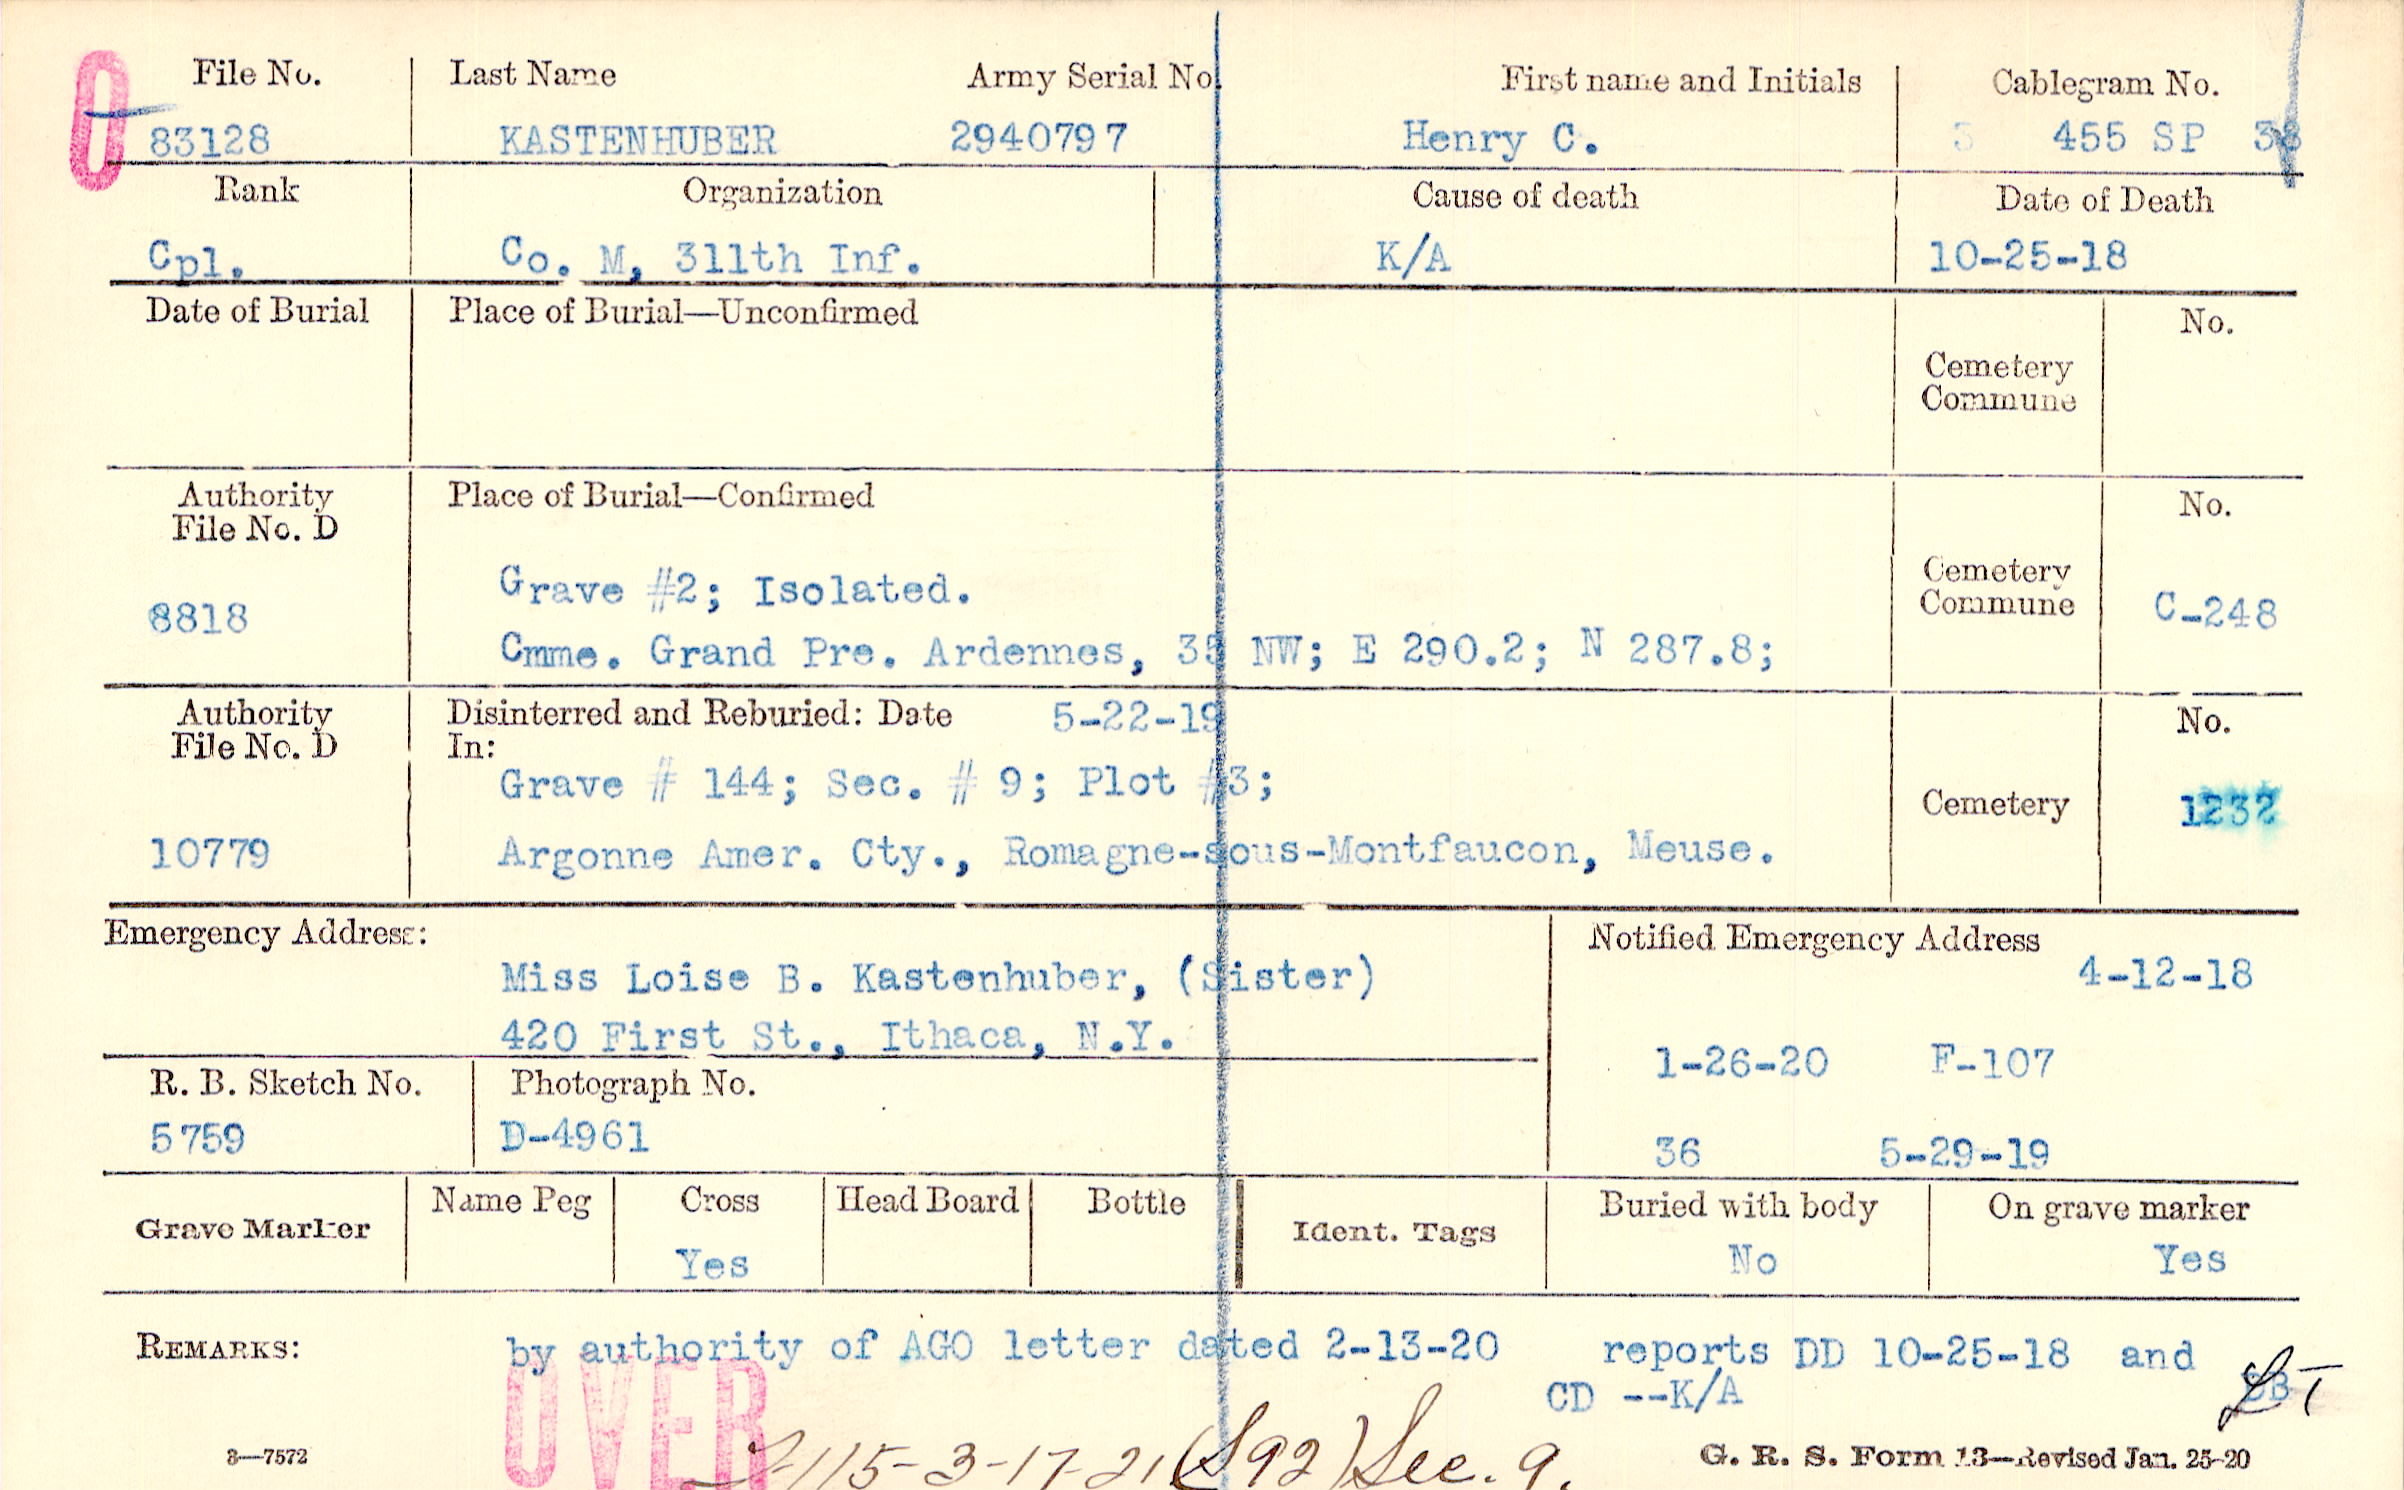 0
File No. Last Name Army Serial No. First name and Initials Cablegram No.
83128 KASTENHUBER 2940797 Henry C. 455 SP 38
Rank Organization Cause of death Date of Death
Cpl. Co. M, 311th Inf. K/A 10-25-18
Date of Burial Place of Burial—Unconfirmed No.
Cemetery
Commune
Authority Place of Burial—Confirmed No.
File No. D
Cemetery
Commune
8818 Grave #2; Isolated. C-248
Cmme. Grand Pre. Ardennes, 35 NW; E 290.2; N 287.8;
Authority Disinterred and Reburied: Date 5-22-19 No.
File No. D In:
Grave # 144; Sec. # 9; Plot #3;
Cemetery 1232
10779 Argonne Amer. Cty., Romagne-sous-Montfaucon, Meuse.
Emergency Address: Notified Emergency Address
Miss Loise B. Kastenhuber, (Sister) 4-12-18
420 First St., Ithaca, N.Y.
1-26-20 F-107
R. B. Sketch No. Photograph No.
5759 D-4961 36 5-29-19
Grave Marker Name Peg Cross Head Board Bottle Ident. Tags Buried with body On grave marker
Yes No Yes
REMARKS: by authority of AGO letter dated 2-13-20 reports DD 10-25-18 and
CD --K/A
OVER
115-3-17-21 (S92) Sec. 9.
3—7572 G. R. S. Form 13—Revised Jan. 25-20